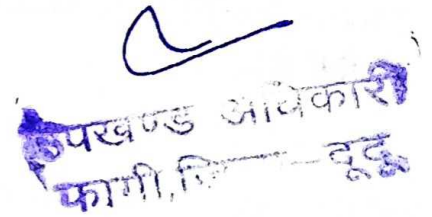 उपखण्ड अधिकारी
फागी, दूदू